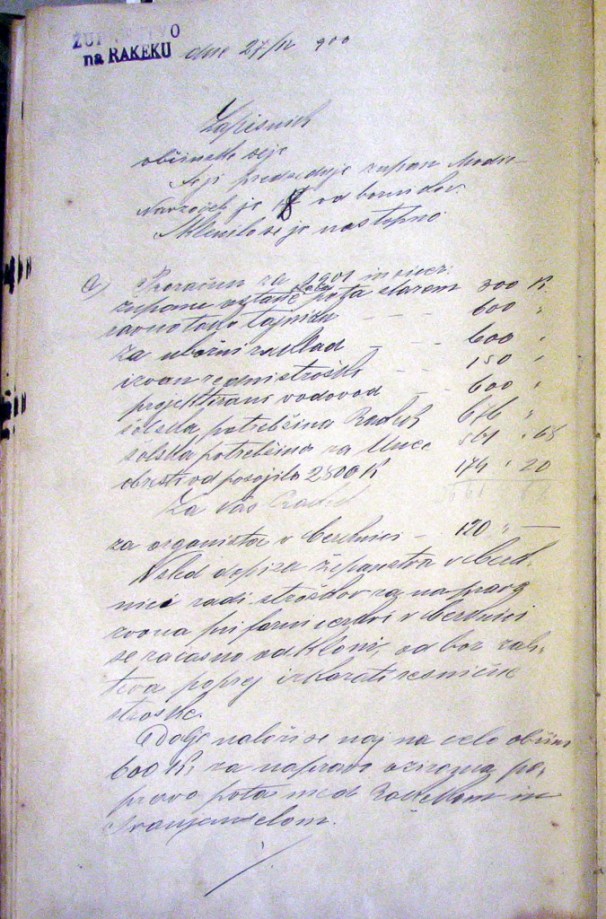 ŽUPANSTVO
na RAKEKU dne 27/12 900
Zapisnik
občinske seje
Seji predseduje župan Modic
Navzočih je 8 odbornikov.
Sklenilo se je nastopno
a) Proračun za 1901 in sicer:
županu ostane plača po starem 800 K
ravno tako tajniku — — 600 "
za ubožni zaklad — — 600 "
izvanredni stroški — 150 "
projektirani vodovod — 600 "
šolska potrebščina Rakek 676 "
šolska potrebščina za Unec 561 " 68
obresti od posojila 2800 K 174 " 20
Za vas Rakek
za organista v Cerknici — 120 " —
Vsled dopisa županstva v Cerk-
nici radi stroškov za napravo
zvona pri farni cerkvi v Cerknici
se začasno odkloni, odbor zah-
teva poprej izkazati resnične
stroške.
Dalje naloži se naj na celo občino
600 K, za napravo oziroma po-
pravo pota med Rakekom in
Ivanjeselom.